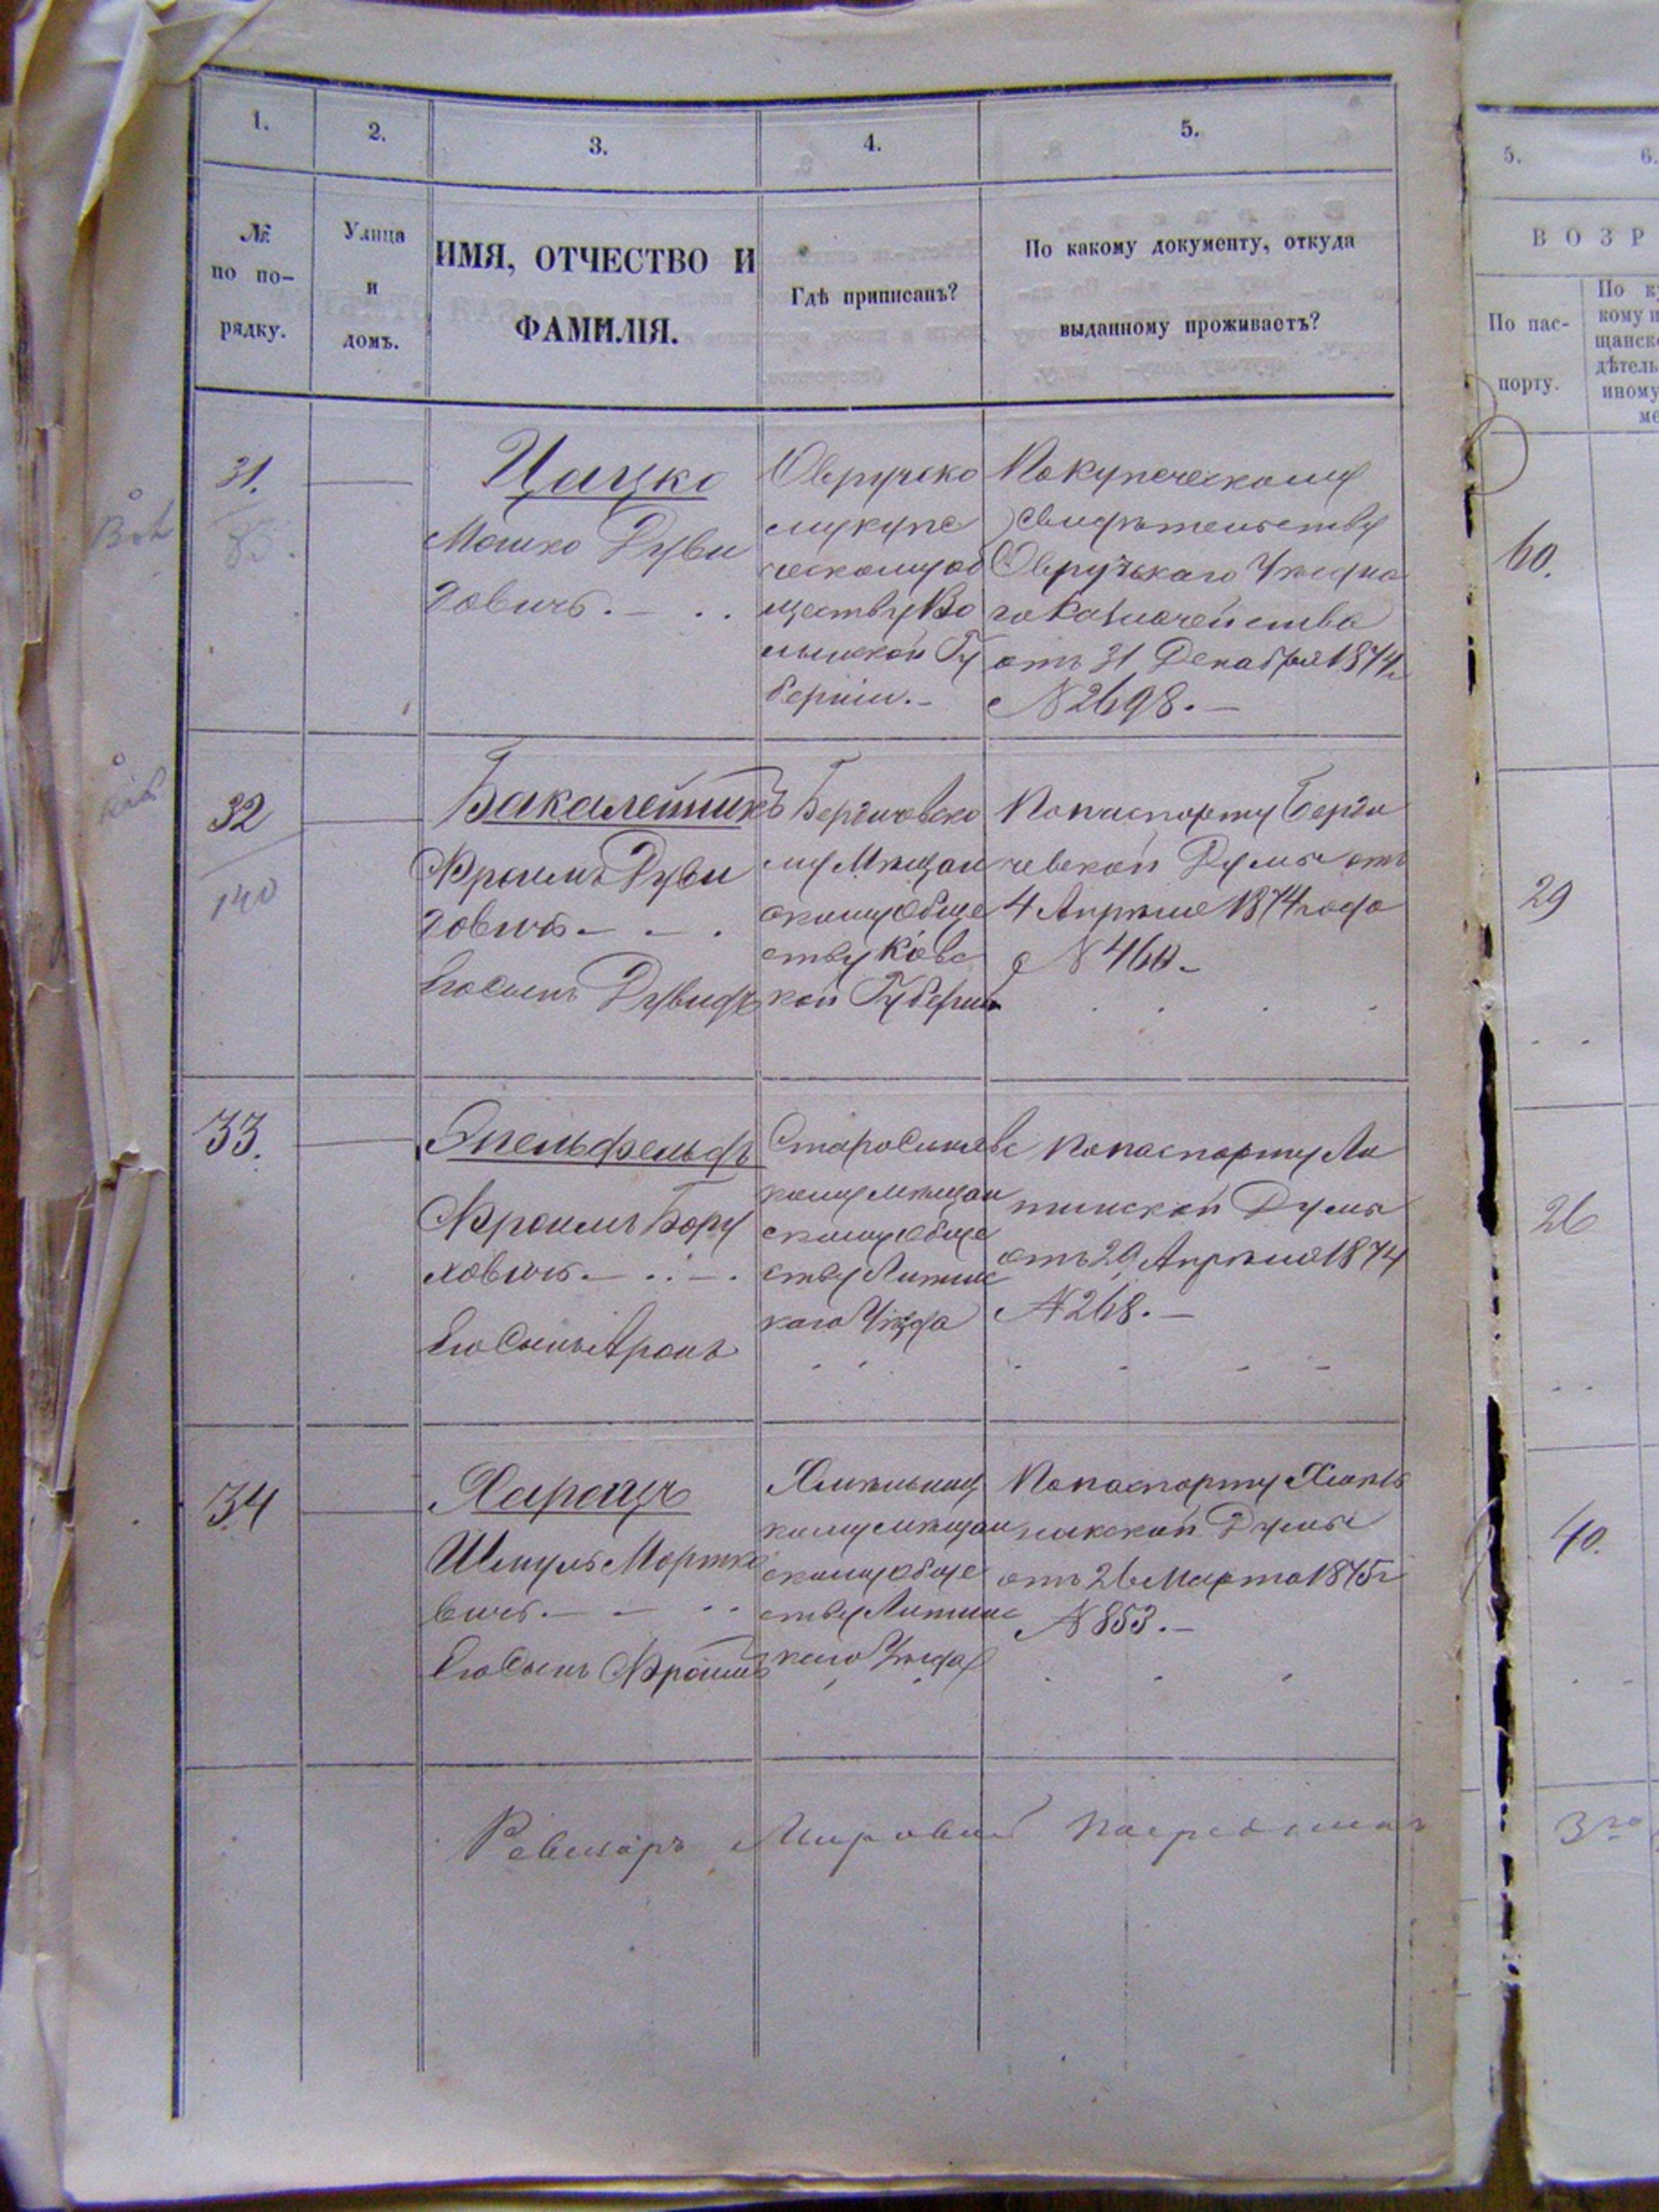 1.
2.
3.
4.
5.
№
по по-
рядку.
Улица
и
домъ.
ИМЯ, ОТЧЕСТВО И
ФАМИЛІЯ.
Гдѣ приписанъ?
По какому документу, откуда
выданному проживаетъ?
31.
83.
Цацко
Мошко Дуви
довичъ. -
Овручско
му купе
ческому об
ществу Во
лынской Гу
берніи. -
По купеческому
свидѣтельству
Овручскаго Уѣздна
го Казначейства
отъ 31 Декабря 1874 г
№ 2698. -
32
140
Бакалейникъ
Фроимъ Дуви
довичъ - - .
Его сынъ Дувидъ
Бердичевско
му Мѣщан
скому обще
ству Кіевс
кой Губерніи
По паспорту Берди
чевской Думы отъ
4 Апрѣля 1874 года
№ 460 -
33.
Эпельфельдъ
Фроимъ Бору
ховичъ. -
Его Сынъ Аронъ
Старосинявс
кому мѣщан
скому обще
ству Литинс
каго Уѣзда
По паспорту Ли
тинской Думы
отъ 29 Апрѣля 1874
№ 268. -
34
Харацъ
Шмуль Мортко
вичъ. - -
Его Сынъ Фроимъ
Хмѣльниц
кому мѣщан
скому обще
ству Литинс
каго Уѣзда
По паспорту Хмѣль
никской Думы
отъ 26 Марта 1875 г
№ 853. -
Ревизоръ Мировой Посредникъ
5.
6.
ВОЗР
По пас-
порту.
По к
кому и
щанск
дѣтель
иному
ме
60.
29
26
40.
3го